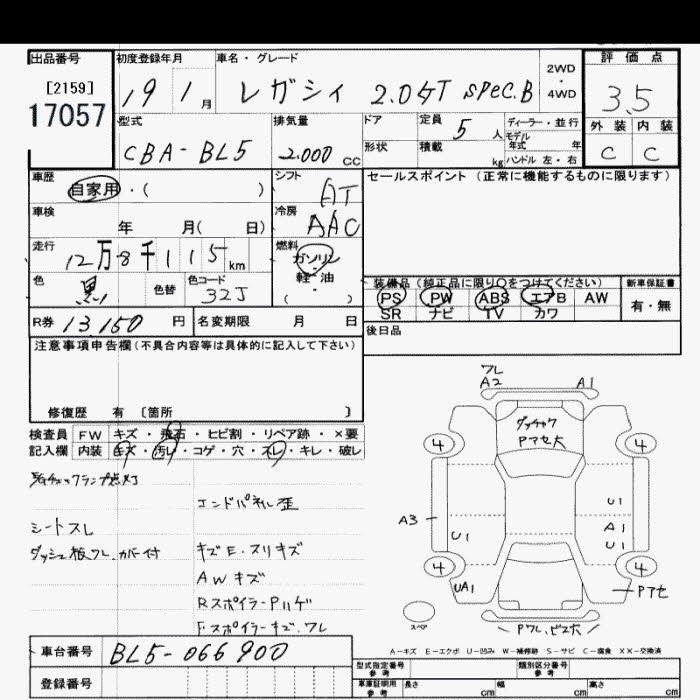 出品番号
[2159]
17057
初度登録年月
19 1月
車名・グレード
レガシィ 2.0GT SPEC.B
2WD
・
4WD
評価点
3.5
外装 内装
C C
型式
CBA-BL5
排気量
2.000 CC
ドア
形状
定員 5 人
積載 kg
ディーラー・並行
モデル
年式 年
ハンドル 左・右
車歴
自家用・( )
シフト
AT
車検
年 月( 日)
冷房
AAC
走行
12万8千115km
燃料
ガソリン
軽・油
( )
色
黒
色替
色コード
32J
R券 13,150 円
名変期限 月 日
セールスポイント (正常に機能するものに限ります)
装備品 (純正品に限り○をつけてください)
PS PW ABS エアB AW
SR ナビ TV カワ
新車保証書
有・無
後日品
注意事項申告欄(不具合内容等は具体的に記入して下さい)
修復歴 有 〔箇所 〕
検査員 FW キズ・飛石・ヒビ割・リペア跡・×要
記入欄 内装 キズ・汚レ・コゲ・穴・スレ・キレ・破レ
エンドパネル歪
シートスレ
ダッシュ板ワレ.カバー付
キズE・スリキズ
AWキズ
RスポイラーPハゲ
Fスポイラーキズ.ワレ
ワレ
A2 A1
Pアセ大
4 4
A3
U1
U1
A1
U1
4 4
UA1
Pアセ
スペア
A-キズ E-エクボ U-凹み W-補修跡 S-サビ C-腐食 XX-交換済
車台番号 BL5-066900
登録番号
型式指定番号
参考
類別区分番号
参考
車庫証明用
参考
長さ cm
幅 cm
高さ cm